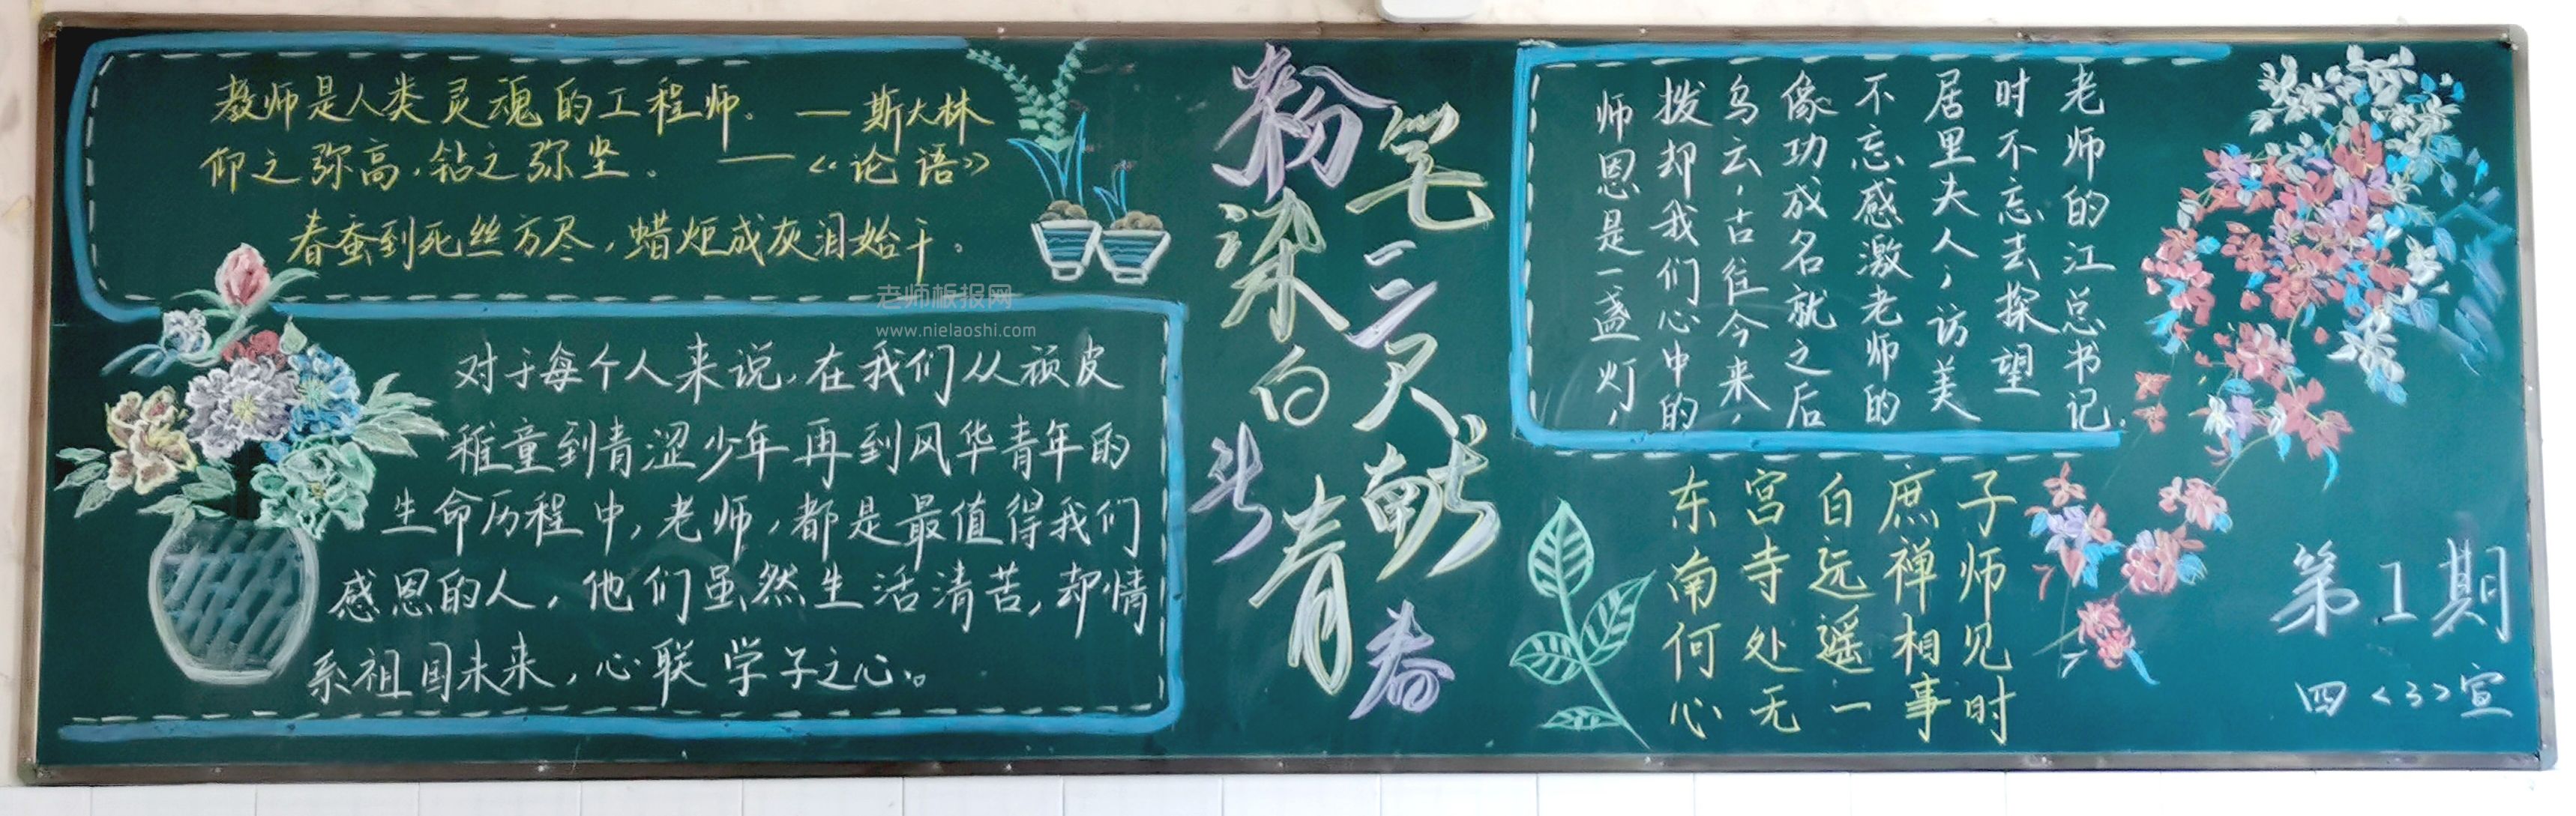 教师是人类灵魂的工程师。—斯大林
仰之弥高，钻之弥坚。——《论语》
春蚕到死丝方尽，蜡炬成灰泪始干。
老师板报网
www.nielaoshi.com
对于每个人来说，在我们从顽皮
稚童到青涩少年再到风华青年的
生命历程中，老师，都是最值得我们
感恩的人，他们虽然生活清苦，却情
系祖国未来，心联学子之心。
粉笔
三尺
染白头
献青春
师恩是一盏灯，
拨却我们心中的
乌云，古往今来，
像功成名就之后
不忘感激老师的
居里夫人，访美
时不忘去探望
老师的江总书记.
东宫白庶子
南寺远禅师
何处遥相见
心无一事时
第1期
四<3>宣